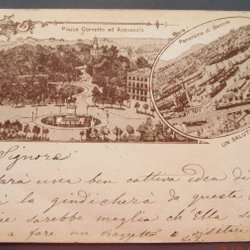 Piazza Corvetto ed Acquasola
Panorama di Genova
UN SAL
Signora
ara una ben cattiva idea di
la giudicherà da questa
sarebbe meglio ch'Ella
a fare un